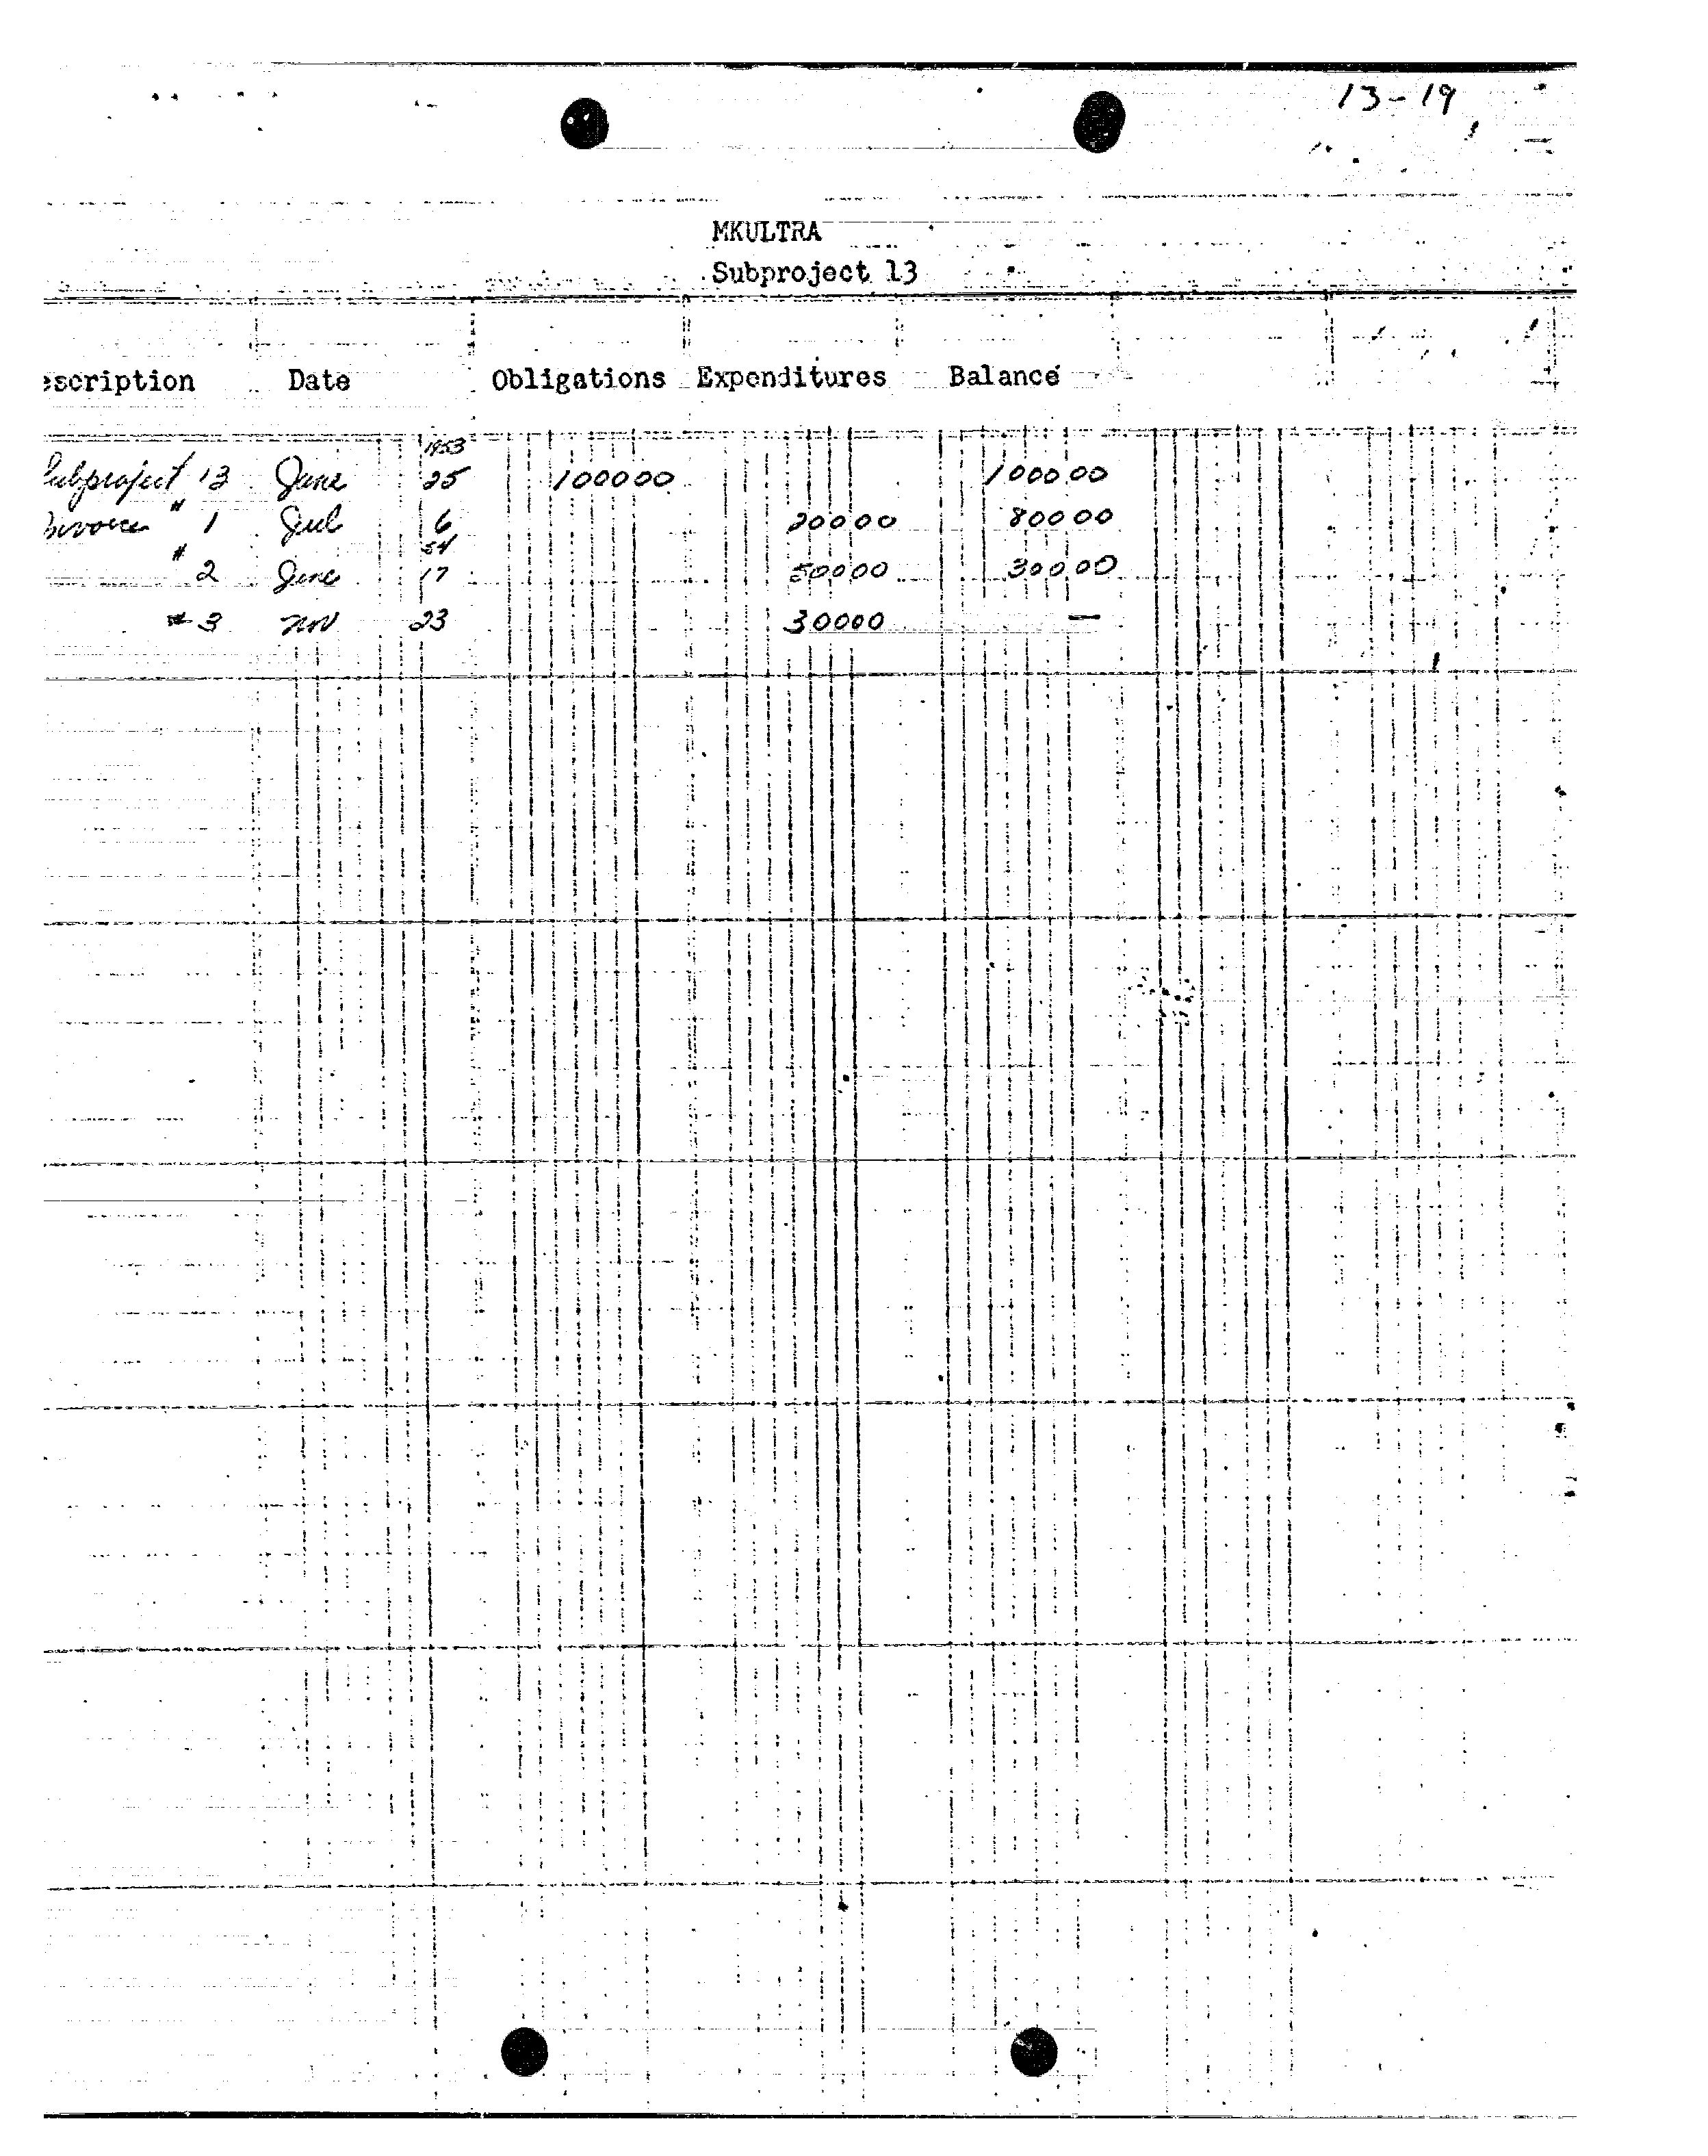 13-19
MKULTRA
Subproject 13
escription Date Obligations Expenditures Balance
1953
Subproject 13 June 25 1000 00 1000 00
Invoice # 1 Jul 6 200 00 800 00
54
# 2 June 17 500 00 300 00
# 3 Nov 23 300 00 —